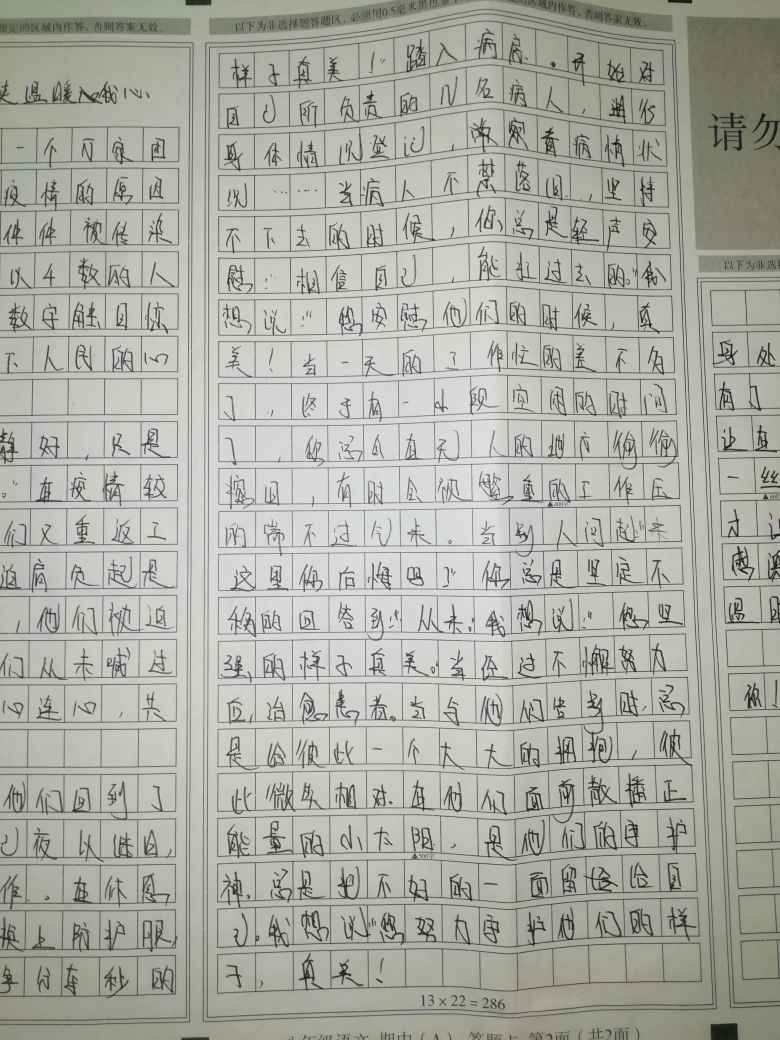 规定的区域内作答，否则答案无效。
温暖入我心
一个万家团
疫情的原因
件件被传染
以4数的人
数字触目惊
下人民的心
静好，只是
。在疫情较
们又重返工
迫肩负起是
，他们被迫
们从未喊过
心连心，共
他们回到了
已夜以继日，
作。在休息
换上防护服，
争分夺秒的
以下为非选择题答题区，必须用0.5毫米黑
的区域内作答，否则答案无效。
样子真美！”踏入病房。开始对
自己所负责的几名病人，进行
身体情况登记，常察看病情状
况……当病人不禁落泪，坚持
不下去的时候，你总是轻声安
慰：相信自己，能打过去的。”我
想说：“您安慰他们的时候，真
美！当一天的工作忙的差不多
了，终于有一小段空闲的时间
了，你总会在无人的地方偷偷
擦泪，有时会被繁重的工作压
的喘不过气来。当别人问起“来
这里你后悔吗？”你总是坚定不
移的回答到：“从未。”我想说：“您坚
强的样子真美。”当经过不懈努力
后，治愈患者。当与他们告别时，总
是给彼此一个大大的拥抱，彼
此微笑相对。在他们面前散播正
能量的小太阳，是他们的守护
神。总是把不好的一面留给自
己。我想说“您努力守护他们的样
子，真美！
13×22=286
八年级语文 期中（A） 答题卡 第2页（共2页）
请勿
以下为非选择
身处
有了
让在
一丝
才让
感
温暖
你！